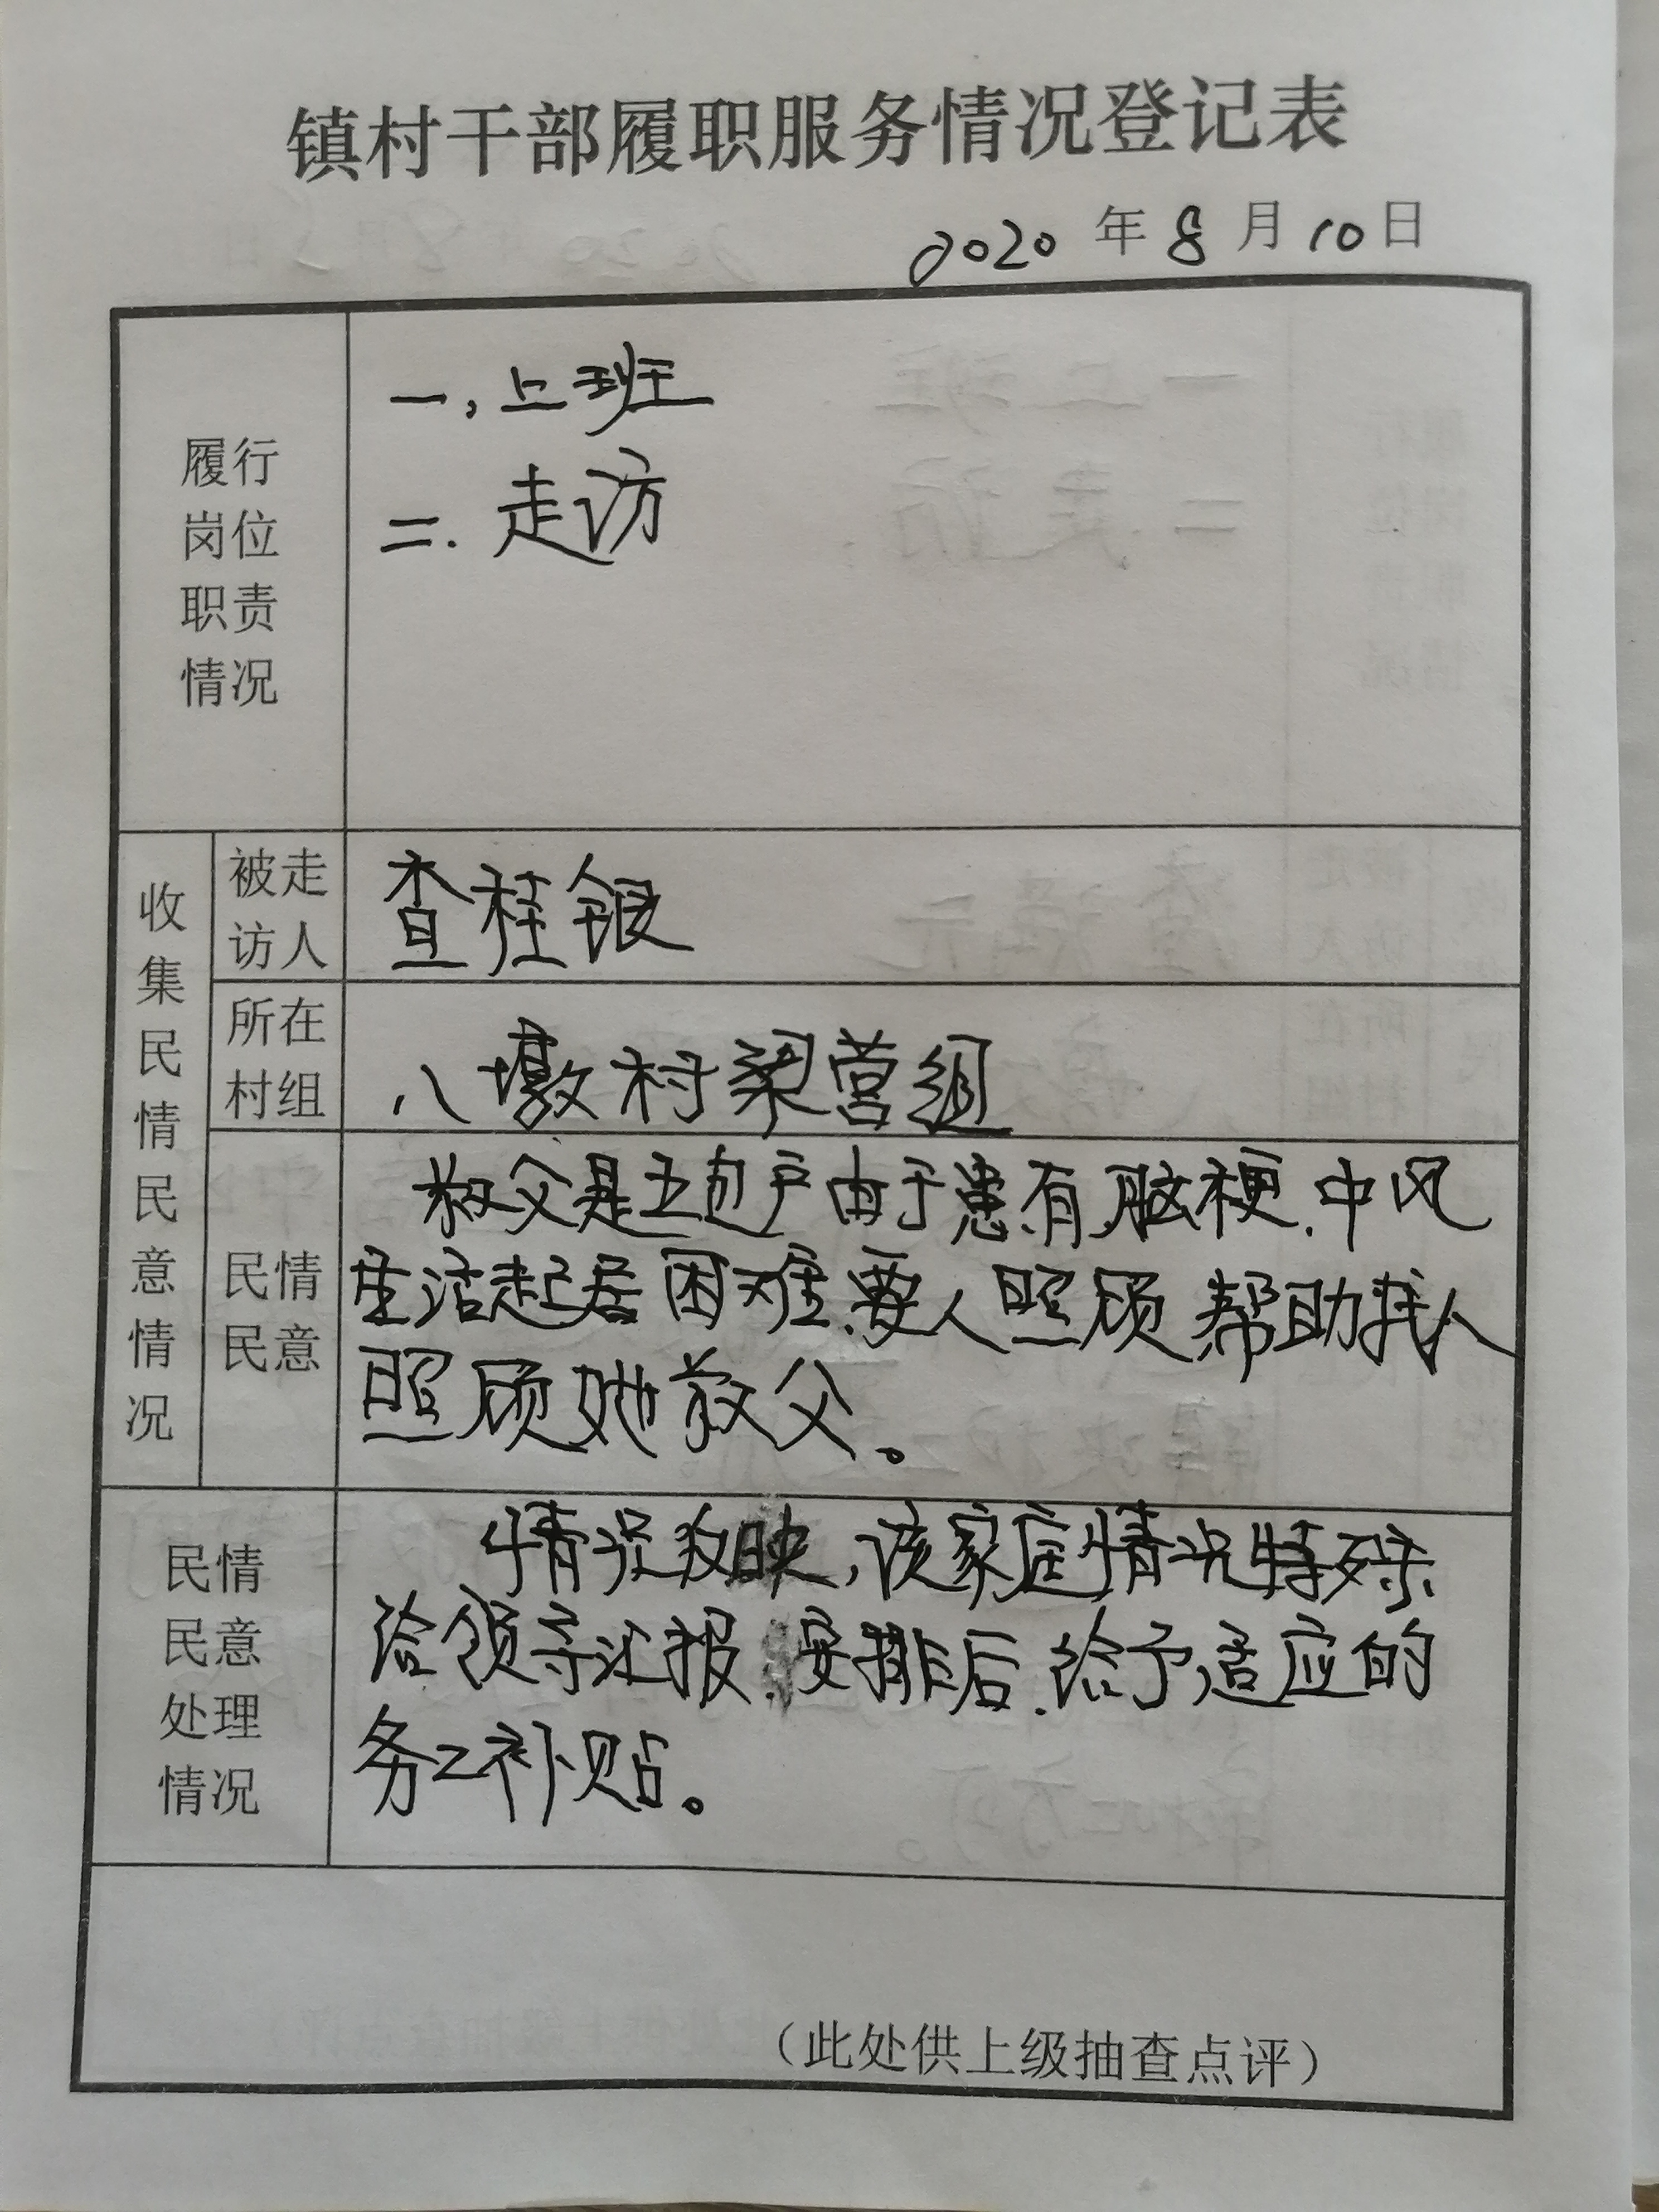 镇村干部履职服务情况登记表
2020年8月10日
履行
岗位
职责
情况
一,上班
二.走访
收集民情民意情况
被走
访人
查桂银
所在
村组
八墩村梁营组
民情
民意
叔父是五包户由于患有脑梗.中风
生活起居困难.要人照顾帮助找人
照顾她叔父。
民情
民意
处理
情况
情况反映,该家庭情况特殊
给领导汇报.安排后.给予适应的
务工补贴。
(此处供上级抽查点评)